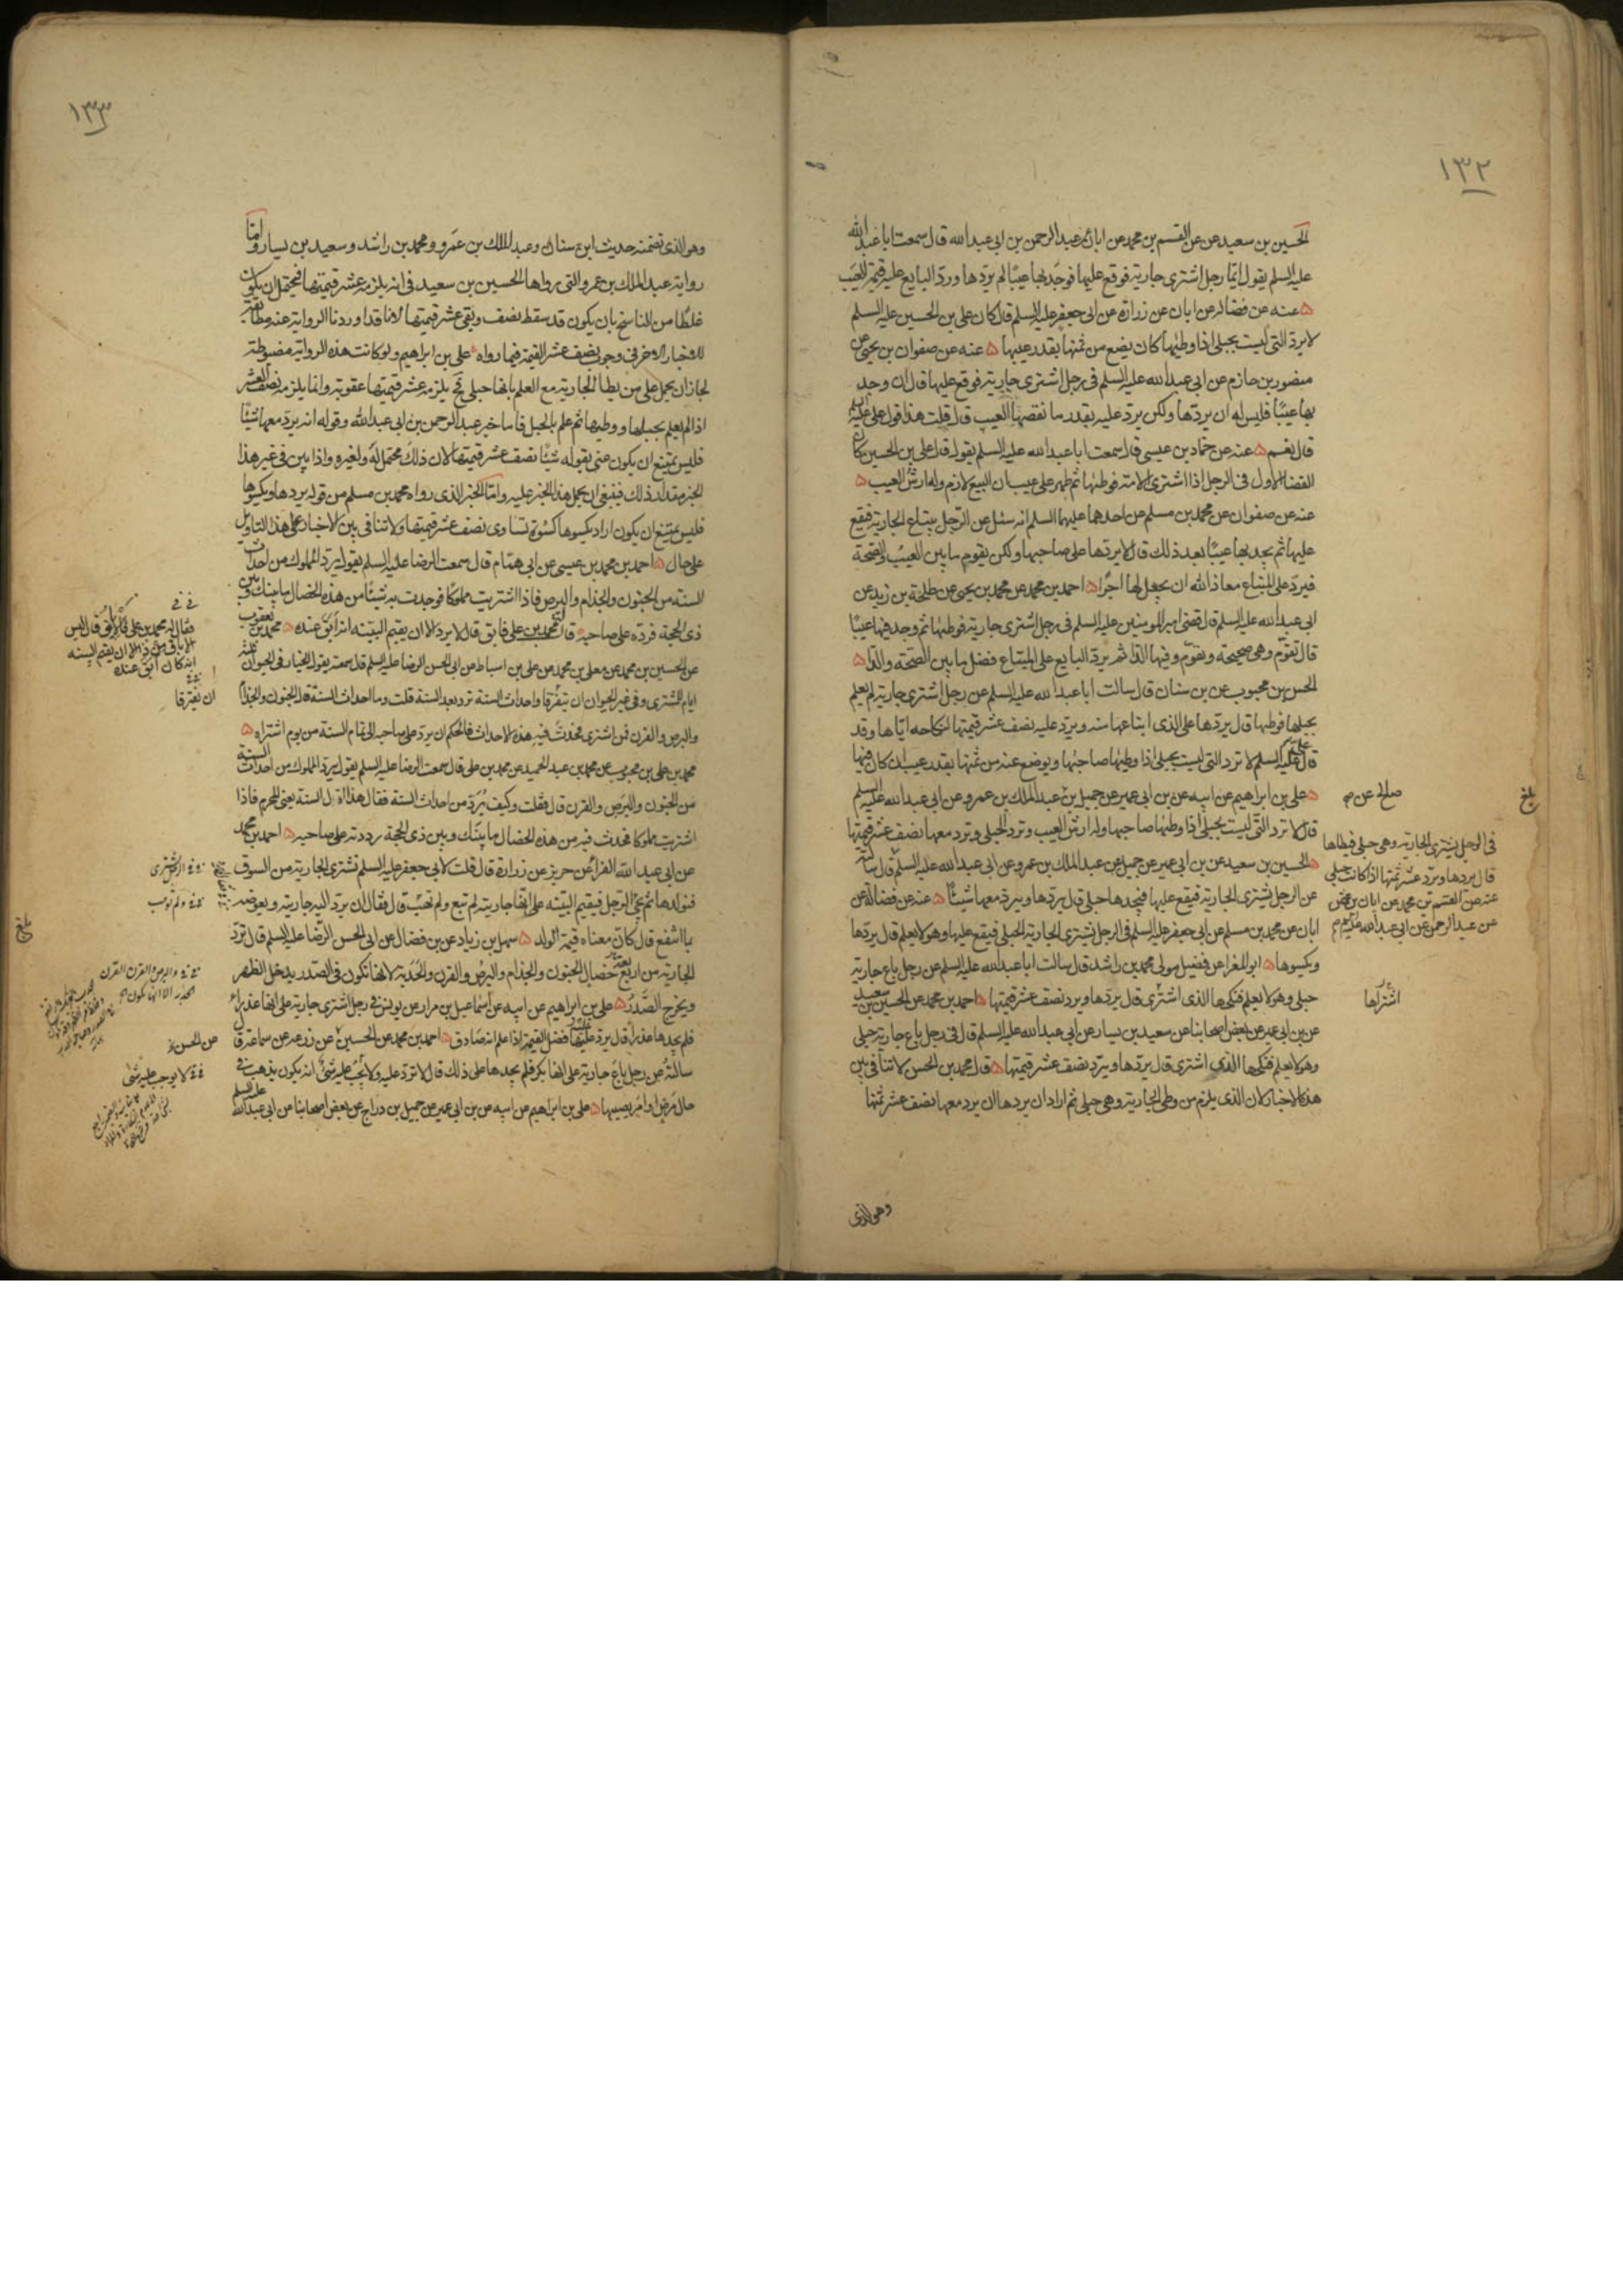 ١٣٢
الحسين بن سعيد عن القسم بن محمد عن ابان عن عبد الرحمن بن ابى عبد الله قال سمعت ابا عبد الله
عليه السلم يقول ايما رجل اشترى جارية فوقع عليها فوجد بها عيبا لم يردها ورد البايع عليه قيمة العيب
عنه عن فضالة عن ابان عن زرارة عن ابى جعفر عليه السلم قال كان على بن الحسين عليه السلم
لا يرد التى ليست بحبلى اذا وطئها كان يضع من ثمنها بقدر عيبها ۵ عنه عن صفوان بن يحيى عن
منصور بن حازم عن ابى عبد الله عليه السلم فى رجل اشترى جارية فوقع عليها قال ان وجد
بها عيبا فليس له ان يردها ولكن يرد عليه بقدر ما نقصها العيب قال قلت هذا قول على عليه
قال نعم ۵ عنه عن حماد بن عيسى قال سمعت ابا عبد الله عليه السلم يقول قال على بن الحسين كان
القضاء الاول فى الرجل اذا اشترى الامة فوطئها ثم ظهر على عيب ان البيع لازم وله ارش العيب ۵
عنه عن صفوان عن محمد بن مسلم عن احدهما عليهما السلم انه سئل عن الرجل يبتاع الجارية فيقع
عليها ثم يجد بها عيبا بعد ذلك قال لا يردها على صاحبها ولكن يقوم ما بين العيب والصحة
فيرد على المبتاع معاذ الله ان يجعل لها اجرا ۵ احمد بن محمد عن محمد بن يحيى عن طلحة بن زيد عن
ابى عبد الله عليه السلم قال قضى امير المومنين عليه السلم فى رجل اشترى جارية فوطئها ثم وجد فيها عيبا
قال تقوم وهى صحيحة وتقوم وفيها الداء ثم يرد البايع على المبتاع فضل ما بين الصحة والداء ۵
الحسن بن محبوب عن بن سنان قال سالت ابا عبد الله عليه السلم عن رجل اشترى جارية لم يعلم
بحبلها فوطئها قال يردها على الذى ابتاعها منه ويرد عليه نصف عشر قيمتها لنكاحه اياها وقد
قال على عليه السلم لا ترد التى ليست بحبلى اذا وطئها صاحبها ويوضع عنه من ثمنها بقدر عيب ان كان فيها
۵ على بن ابراهيم عن ابيه عن بن ابى عمير عن جميل بن صالح عن عبد الملك بن عمرو عن ابى عبد الله عليه السلم
قال لا ترد التى ليست بحبلى اذا وطئها صاحبها وله ارش العيب وترد الحبلى وترد معها نصف عشر قيمتها
۵ الحسين بن سعيد عن بن ابى عمير عن جميل عن عبد الملك بن عمرو عن ابى عبد الله عليه السلم قال سالته
عن الرجل يشترى الجارية فيقع عليها فيجدها حبلى قال يردها ويرد معها شيئا ۵ عنه عن فضالة عن
ابان عن محمد بن مسلم عن ابى جعفر عليه السلم فى الرجل يشترى الجارية الحبلى فيقع عليها وهو لا يعلم قال يردها
ويكسوها ۵ ابو المغرا عن فضيل مولى محمد بن راشد قال سالت ابا عبد الله عليه السلم عن رجل باع جارية
حبلى وهو لا يعلم فنكحها الذى اشترى قال يردها ويرد نصف عشر قيمتها ۵ احمد بن محمد عن الحسين بن سعيد
عن بن ابى عمير عن بعض اصحابنا عن سعيد بن يسار عن ابى عبد الله عليه السلم قال فى رجل باع جارية حبلى
وهو لا يعلم فنكحها الذى اشترى قال يردها ويرد نصف عشر قيمتها ۵ قال محمد بن الحسن لا تنافى بين
هذه الاخبار لان الذى يلزم من وطى الجارية وهى حبلى ثم اراد ان يردها ان يرد معها نصف عشر ثمنها
وهو الذى
بلغ
صالح عن
فى الرجل يشترى الجارية وهى حبلى فيطاها
قال يردها ويرد عشر ثمنها اذا كانت حبلى
عنه عن القسم بن محمد عن ابان عن
عن عبد الرحمن عن ابى عبد الله عليه
اشتراها
١٣٣
وهو الذى تضمنه حديث ابن سنان وعبد الملك بن عمرو ومحمد بن راشد وسعيد بن يسار واما
رواية عبد الملك بن عمرو التى رواها الحسين بن سعيد فى انه يلزمه عشر قيمتها فيحتمل ان يكون
غلطا من الناسخ بان يكون قد سقط نصف وبقى عشر قيمتها لانا قد اوردنا الرواية عنه مطابقة
للاخبار الاخر فى وجوب نصف عشر القيمة فيما رواه على بن ابراهيم ولو كانت هذه الرواية مضبوطة
لجاز ان يحمل على من يطا الجارية مع العلم بانها حبلى فح يلزمه عشر قيمتها عقوبة وانما يلزمه نصف العشر
اذا لم يعلم بحبلها ووطيها ثم علم بالحبل فاما خبر عبد الرحمن بن ابى عبد الله وقوله انه يرد معها شيئا
فليس يمتنع ان يكون عنى بقوله شيئا نصف عشر قيمتها لان ذلك محتمل له ولغيره واذا بين فى غير هذا
الخبر مقدار ذلك فينبغى ان يحمل هذا الخبر عليه واما الخبر الذى رواه محمد بن مسلم من قوله يردها ويكسوها
فليس يمتنع ان يكون اراد يكسوها كسوة تساوى نصف عشر قيمتها ولا تنافى بين الاخبار على هذا التاويل
على حال ۵ احمد بن محمد بن عيسى عن ابى همام قال سمعت الرضا عليه السلم يقول يرد المملوك من احداث
السنة من الجنون والجذام والبرص فاذا اشتريت مملوكا فوجدت به شيئا من هذه الخصال ما بينك وبين
ذى الحجة فرده على صاحبه قال محمد بن على فابق قال لا يرد الا ان يقيم البينة انه ابق عنده ۵ محمد بن يعقوب
عن الحسين بن محمد عن معلى بن محمد عن على بن اسباط عن ابى الحسن الرضا عليه السلم قال سمعته يقول الخيار فى الحيوان ثلثة
ايام للمشترى وفى غير الحيوان ان يتفرقا واحداث السنة ترد بعد السنة قلت وما احداث السنة قال الجنون والجذام
والبرص والقرن فمن اشترى فحدث فيه هذه الاحداث فالحكم ان يرد على صاحبه الى تمام السنة من يوم اشتراه ۵
محمد بن على بن محبوب عن محمد بن عبد الحميد عن محمد بن على قال سمعت الرضا عليه السلم يقول يرد المملوك من احداث السنة
من الجنون والبرص والقرن قال فقلت وكيف يرد من احداث السنة فقال هذا اول السنة يعنى المحرم فاذا
اشتريت مملوكا فحدث فيه من هذه الخصال ما بينك وبين ذى الحجة رددته على صاحبه ۵ احمد بن محمد
عن ابى عبد الله الفراء عن حريز عن زرارة قال قلت لابى جعفر عليه السلم تشترى الجارية من السوق
فيولدها ثم يجئ الرجل فيقيم البينة على انها جاريته لم تبع ولم تهب قال فقال ان يرد اليه جاريته ويعوضه
بما انتفع قال كان معناه قيمة الولد ۵ سهل بن زياد عن بن فضال عن ابى الحسن الرضا عليه السلم قال ترد
الجارية من اربع خصال الجنون والجذام والبرص والقرن والحدبة لانها تكون فى الصدر يدخل الظهر
ويخرج الصدر ۵ على بن ابراهيم عن ابيه عن اسماعيل بن مرار عن يونس فى رجل اشترى جارية على انها عذراء
فلم يجدها عذراء قال يرد عليه فضل القيمة اذا علم انه صادق ۵ احمد بن محمد عن الحسين عن زرعة عن سماعة قال
سالته عن رجل باع جارية على انها بكر فلم يجدها على ذلك قال لا ترد عليه ولا يجب عليه شئ انه يكون يذهب فى
حال مرض او امر يصيبها ۵ على بن ابراهيم عن ابيه عن بن ابى عمير عن جميل بن دراج عن بعض اصحابنا عن ابى عبد الله عليه السلم
فقال له محمد بن على
الا ان يقيم البينة
انه كان ابق عنده
ان يفترقا
بلغ
عن الحسن
لا يوجب عليه شئ